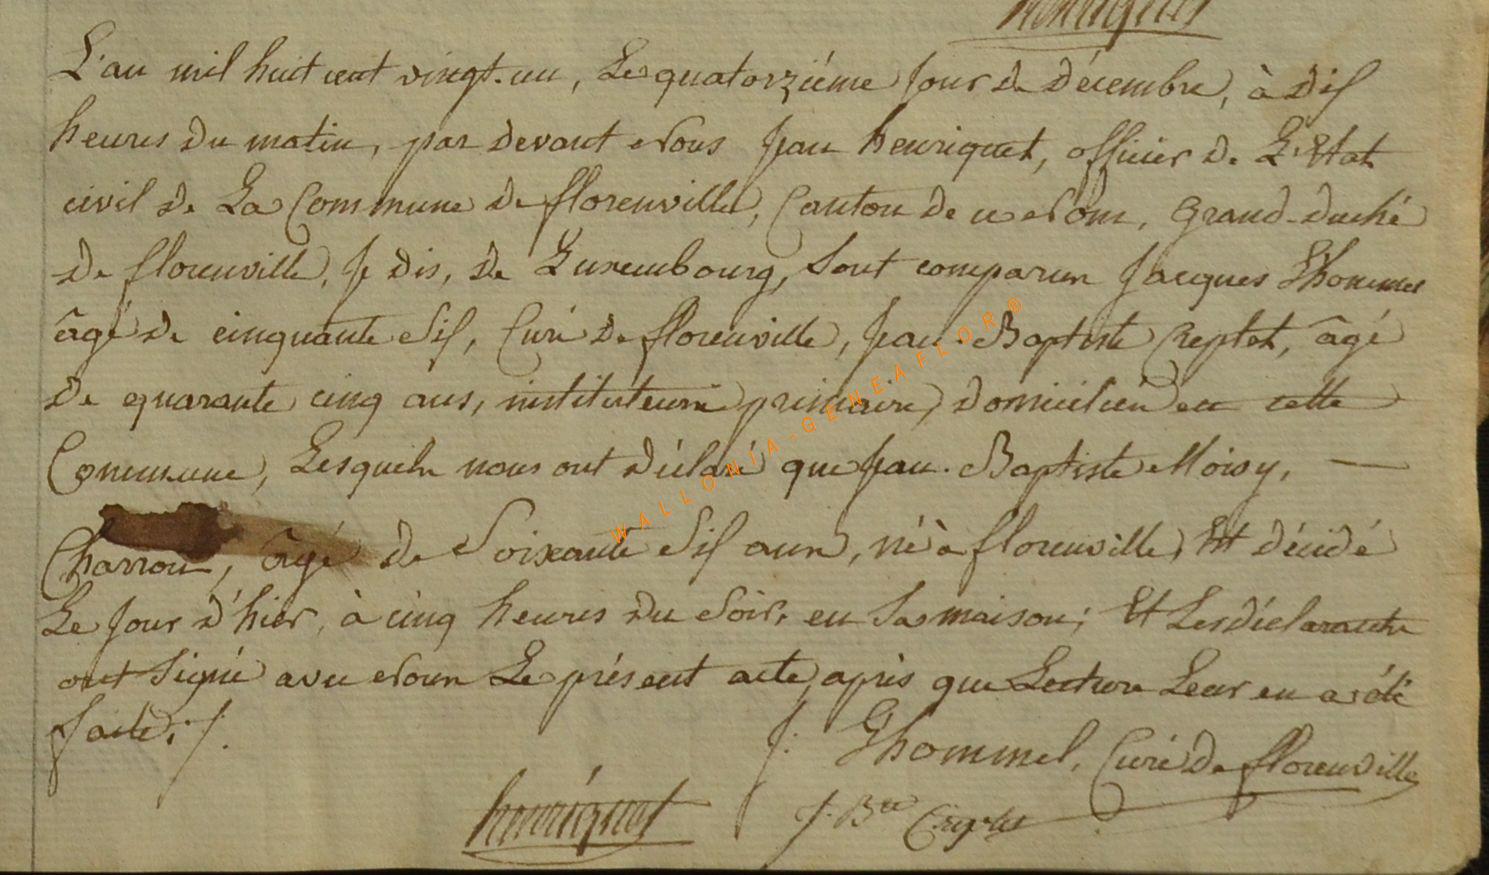 henriquet
L'an mil huit cent vingt-un, Le quatorzième Jour de décembre, à dix
heures du matin, par devant Nous Jean henriquet, officier de L'Etat
civil de La Commune de florenville, Canton de ce Nom, Grand-duché
de florenville, Je dis, de Luxembourg, Sont comparus Jacques Thommel
âgé de cinquante Six, Curé de florenville, Jean-Baptiste Creplet, âgé
de quarante cinq ans, instituteur primaire, domiciliés en cette
Commune, Lesquels nous ont déclaré que Jean-Baptiste Moisy, —
Charron, âgé de Soixante Six ans, né à florenville, Est décédé
Le Jour d'hier, à cinq heures du Soir, en Sa maison; Et Les déclarants
ont Signé avec Nous Le présent acte, après que Lecture Leur en a été
faite ./.
J. Thommel, Curé de florenville
henriquet J. Bte
WALLONIA-GENEAFLOR®